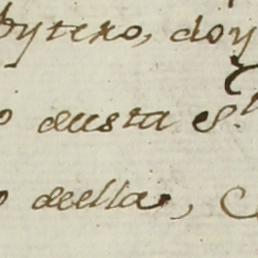 bytero, doy
o desta S.
o della,